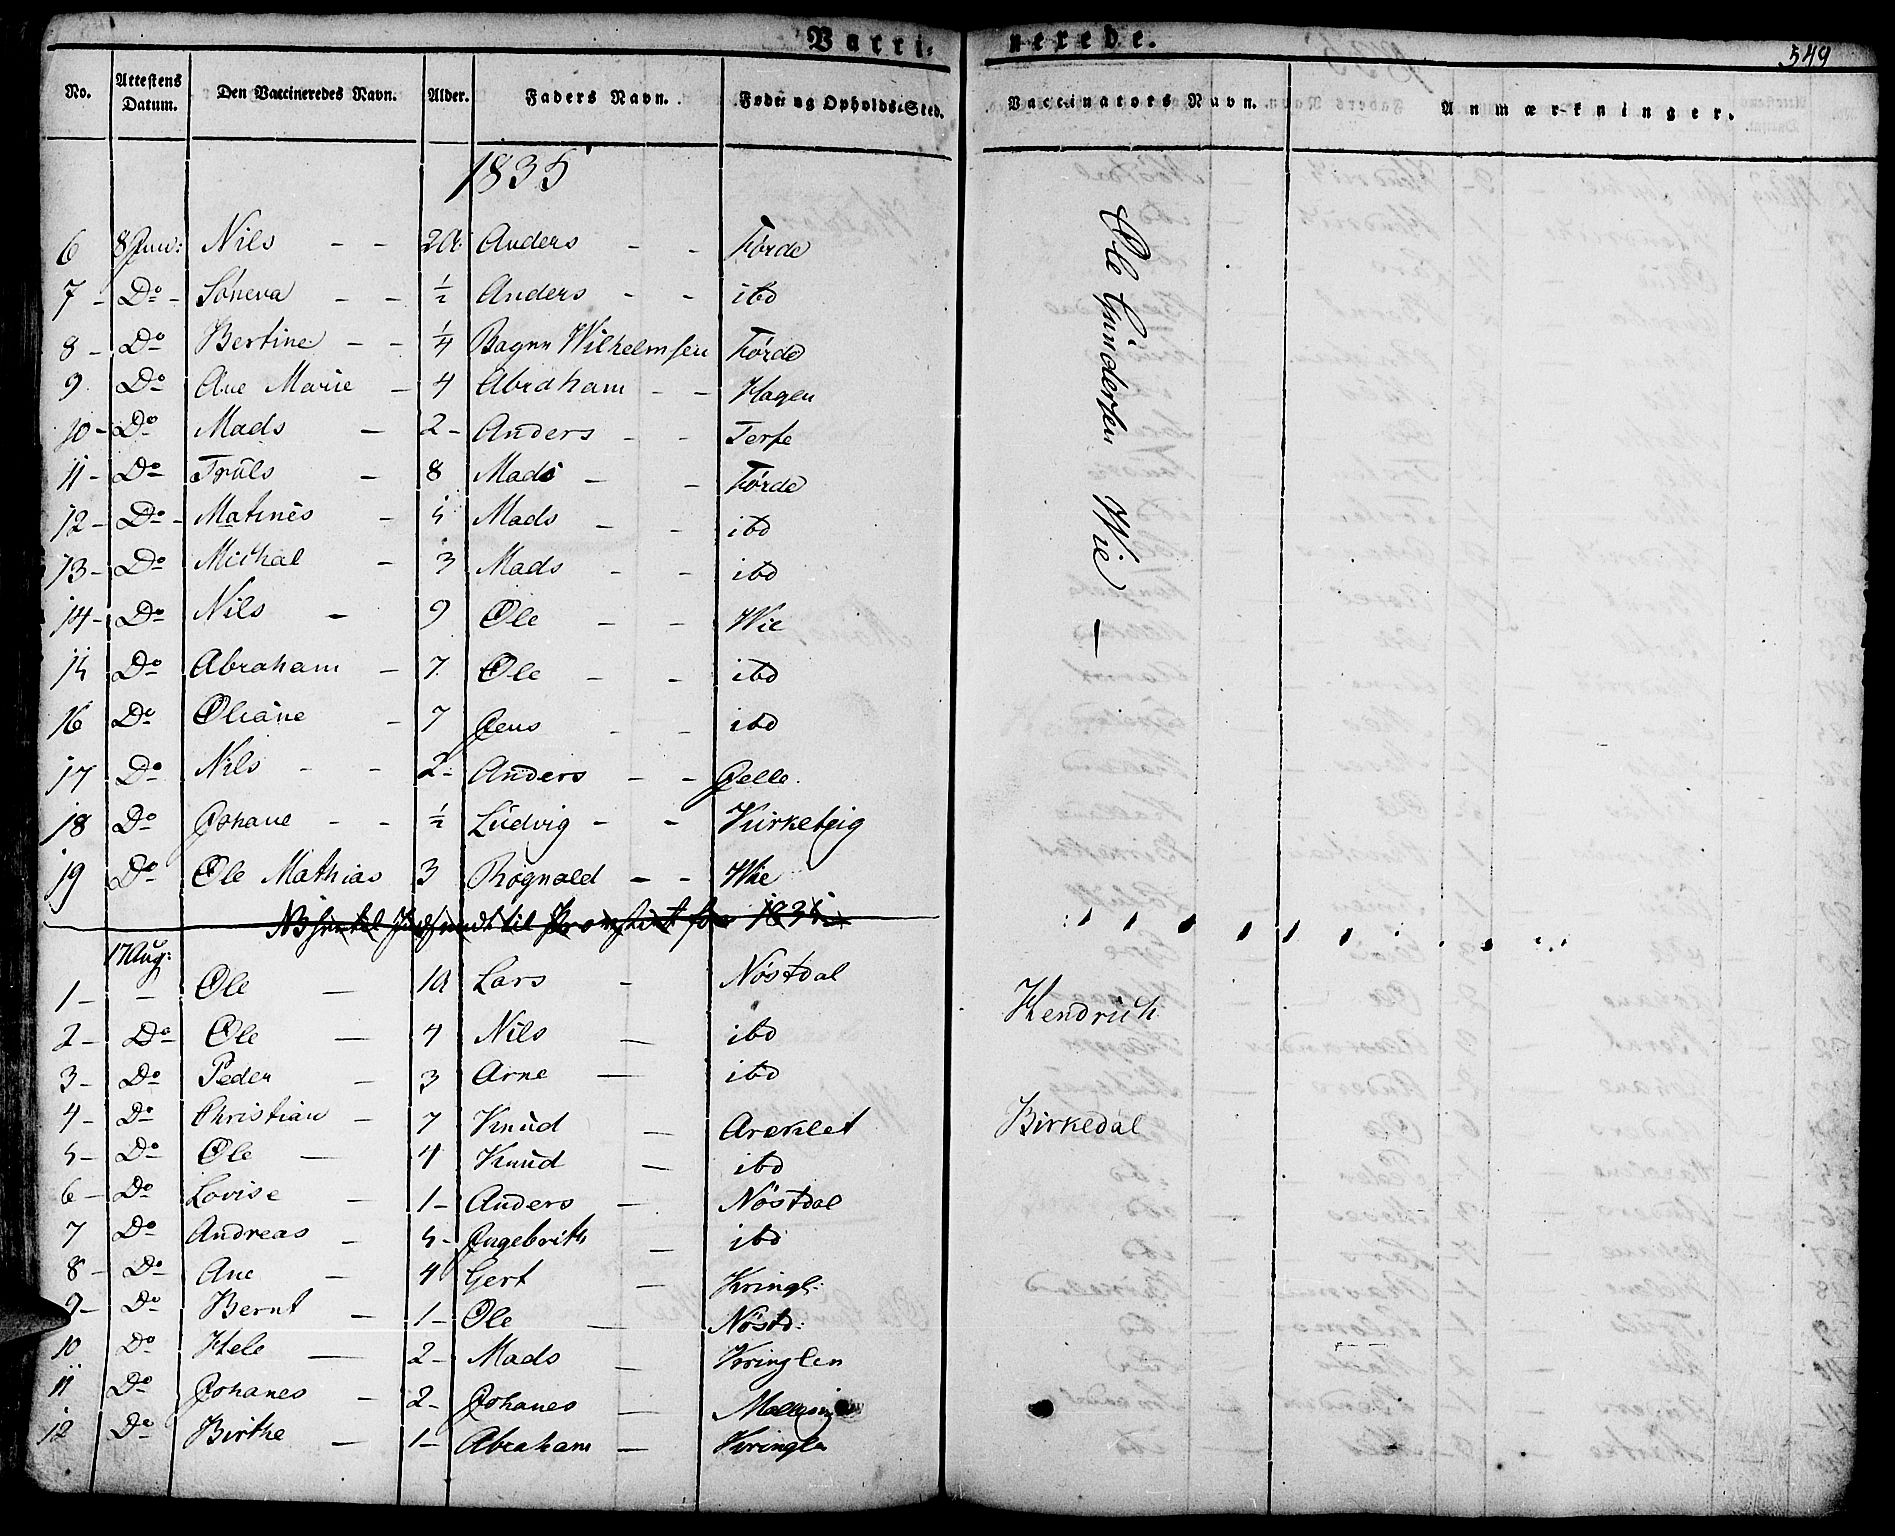 Vacci- nerede. 549
No. Attestens Datum. Den Vaccineredes Navn. Alder. Faders Navn. Føde- og Opholds-Sted. Vaccinators Navn. Anmærkninger.
1835
6 8 Jun: Nils - - 2 Anders - - Førde
7 - Do - Söneva - - ½ Anders - - ibd
8 - Do Bertine - - ¼ Wilhelmsen Førde
9 Do Ane Marie - 4 Abraham - - Hagen
10 - Do Mads - 2 - Anders - - Terfe
11 - Do Truls - 8 Mads - - Førde
12 - Do - Matinés - 5 Mads - - ibd
13 - Do Michal - 3 Mads - - ibd
14 - Do Nils - 9 Ole - - Wie
15 Do Abraham - 7 Ole - - ibd
16 Do Oliane - 7 Jens - - ibd
17 Do Nils - - 2 - Anders - - Jelle.
18 Do Johane - - ½ Ludvig - - Kirketeig
19 Do Ole Mathias 3 Rognald - - Wie
Ole Gundersen Wie -
17 Aug:
1 - - Ole - Lars - Nöstdal
2 - Do Ole - 4 Nils - ibd Hendrich
3 - Do Peder - 3 Arne - ibd
4 - Do Christian - 7 Knud - Areklet Birkedal
5 - Do Ole - 4 Knud - ibd
6 - Do Lovise - 1 - Anders - Nöstdal
7 Do Andreas - 5 - Ingebrith - ibd
8 - Do Ane - 4 Gert - Kringl:
9 - Do Bernt - 1 - Ole - Nöstd:
10 Do Hele - 2 - Mads - Kringlen
11 Do Johanes - 2 - Johanes -
12 Do Birthe - 1 - Abraham - Kringle